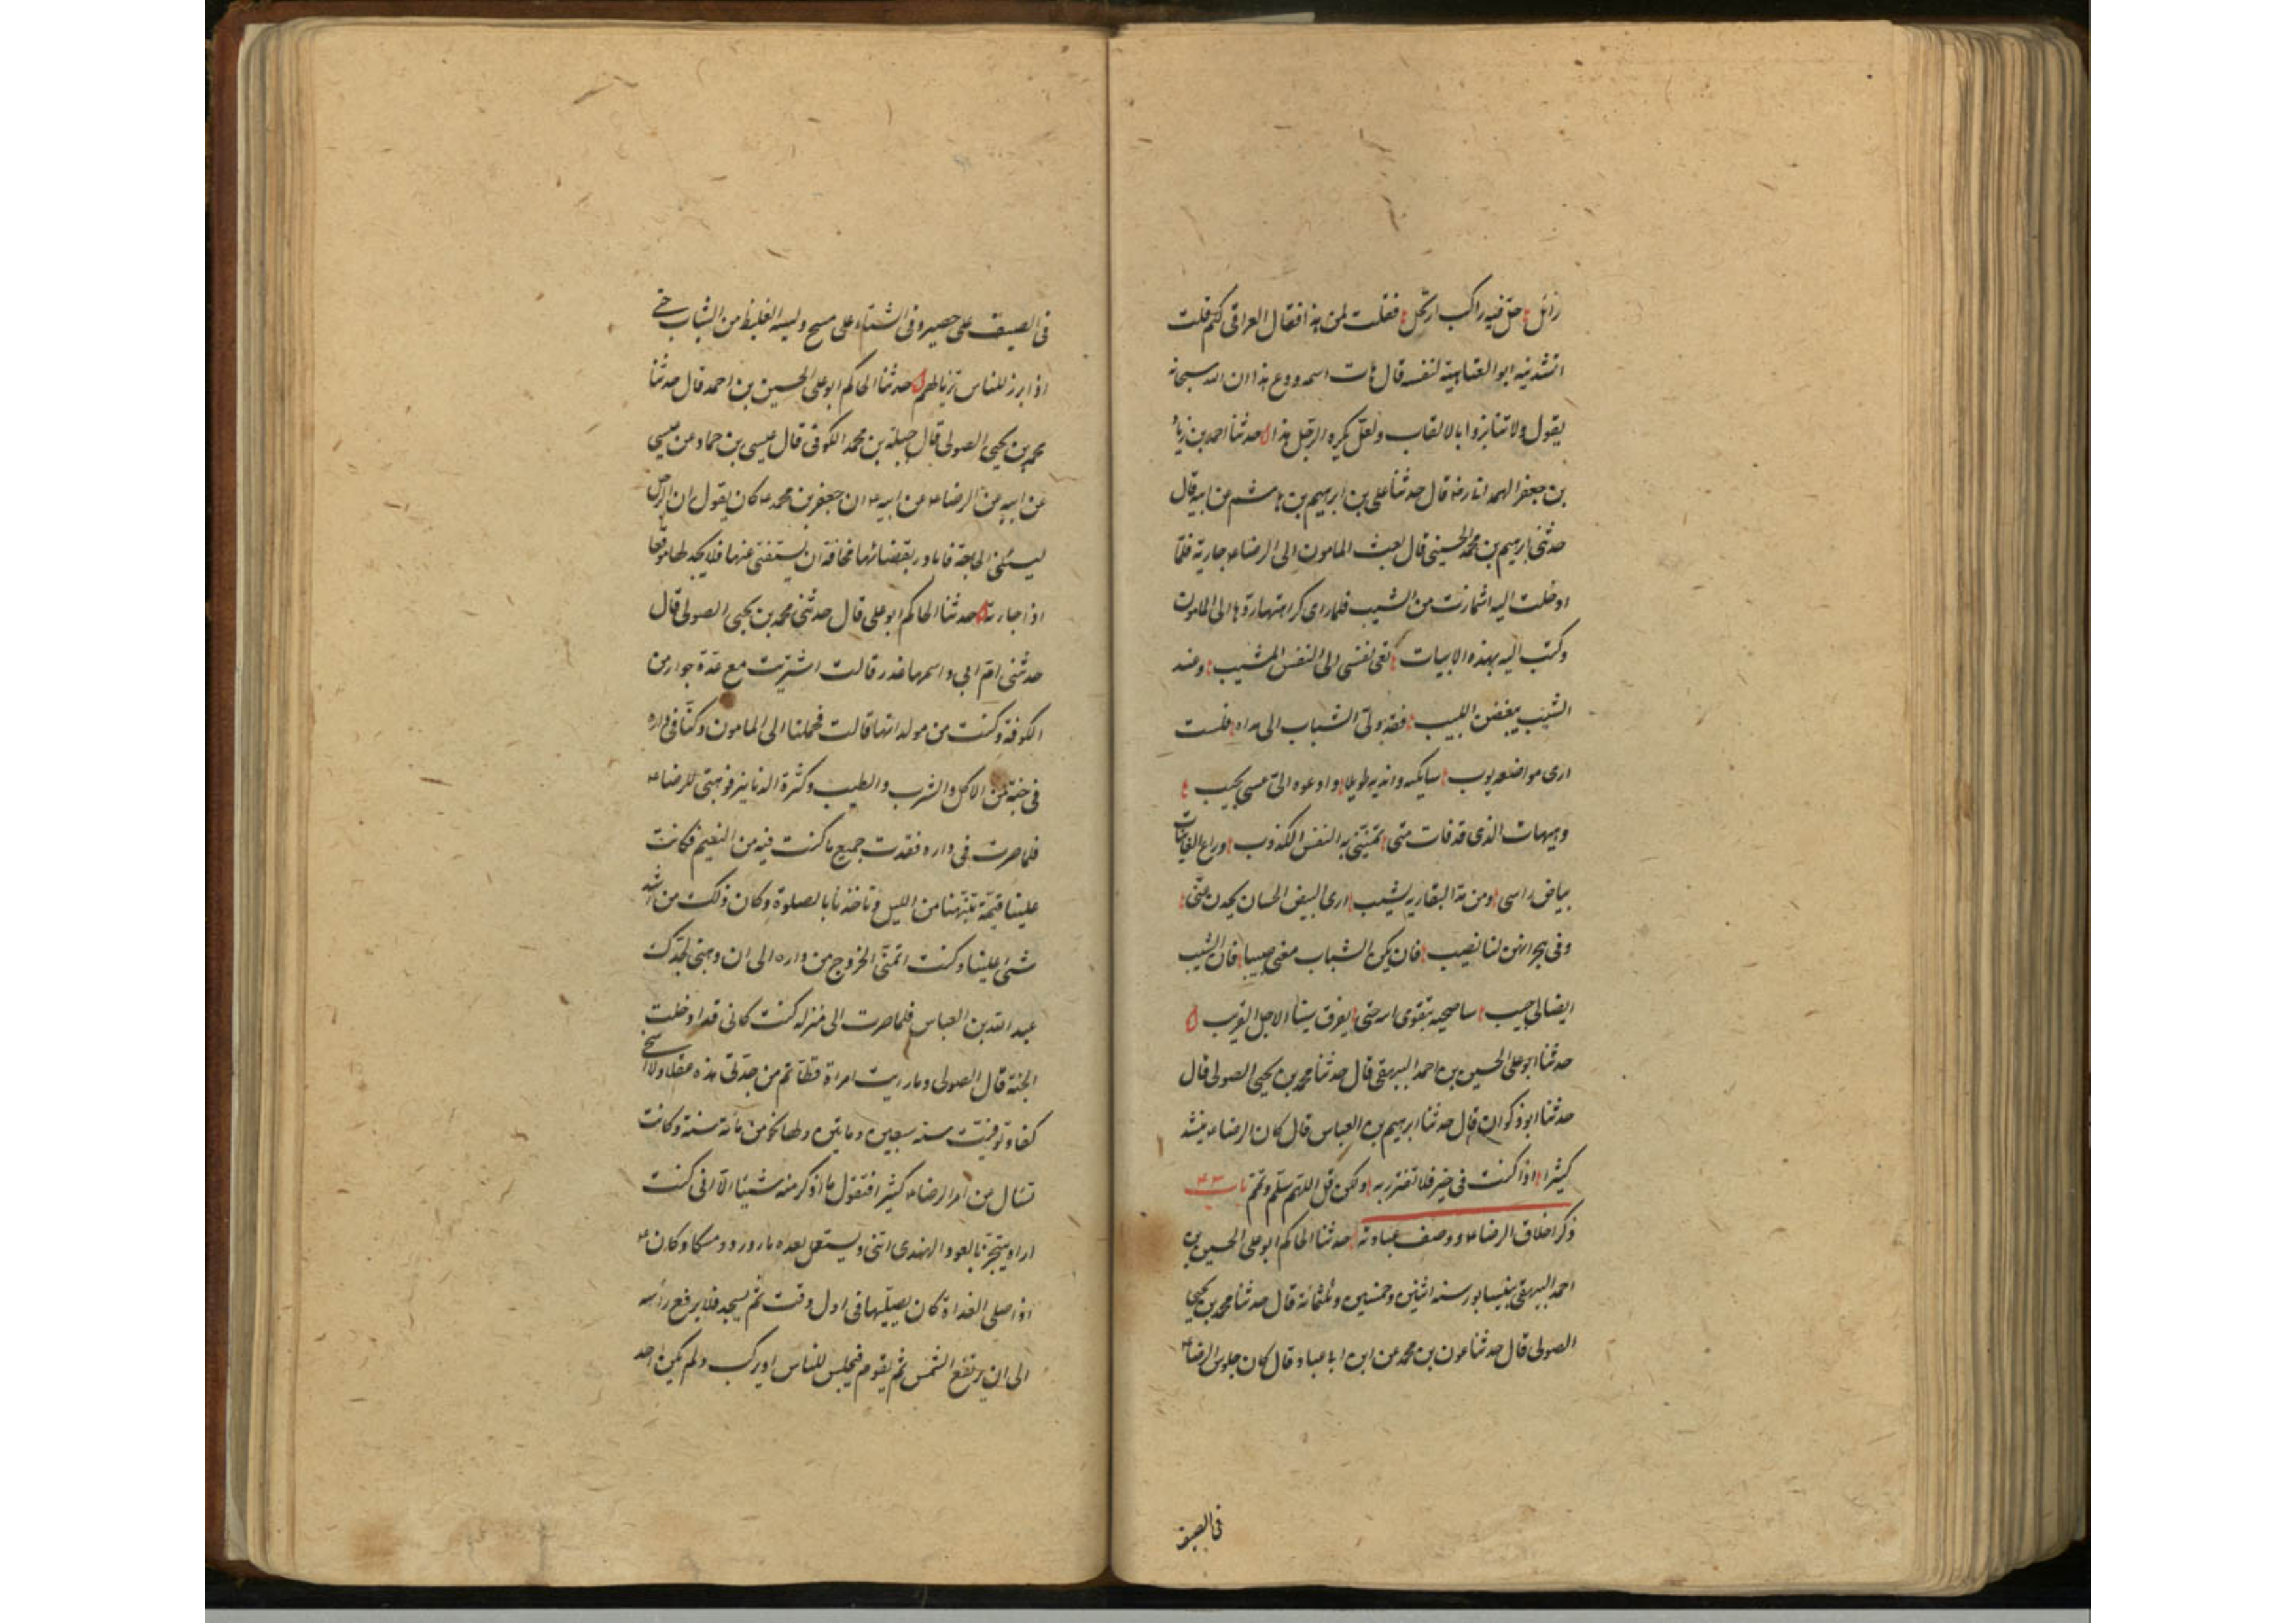 زائل حل فيه راكب ارتحل فقلت لمن هذا فقال العراقى لكم قلت
انشدنيه ابو العتاهية لنفسه قال هات اسمه ودع هذا ان الله سبحانه
يقول ولا تنابزوا بالالقاب ولعل يكره الرجل هذا حدثنا احمد بن زياد
بن جعفر الهمدانى رضه قال حدثنا على بن ابرهيم بن هاشم عن ابيه قال
حدثنى ابرهيم بن محمد الحسينى قال بعث المامون الى الرضاء جارية فلما
ادخلت اليه اشمازت من الشيب فلما راى كراهتها ردها الى المامون
وكتب اليه بهذه الابيات نعى نفسى الى النفس المشيب وعند
الشيب يتعض اللبيب فقد ولى الشباب الى مداه فلست
ارى مواضعه يوب سابكيه واندبه طويلا وادعوه الى عسى يجيب
وهيهات الذى قد فات منى تمنينى به النفس الكذوب وراع الغانيات
بياض راسى ومن مد البقا له يشيب ارى البيض الحسان يحدن عنى
وفى هجرانهن لنا نصيب فان يكن الشباب مضى حبيبا فان الشيب
ايضا لى حبيب ساصحبه بتقوى الله حتى يفرق بيننا الاجل القريب
حدثنا ابو على الحسين بن احمد البيهقى قال حدثنا محمد بن يحيى الصولى قال
حدثنا ابو ذكوان قال حدثنا ابرهيم بن العباس قال كان الرضاء ينشد
كثيرا اذا كنت فى خير فلا تغترر به ولكن قل اللهم سلم وتمم باب ۴۳
ذكر اخلاق الرضاء ووصف عبادته حدثنا الحاكم ابو على الحسين بن
احمد البيهقى بنيسابور سنه اثنين وخمسين وثلثمائة قال حدثنا محمد بن يحيى
الصولى قال حدثنا عون بن محمد عن ابن ابا عباد قال كان جلوس الرضاء
فى الصيف
فى الصيف على حصير وفى الشتاء على مسح ولبسه الغليظ من الثياب حتى
اذا برز للناس تزيا لهم حدثنا الحاكم ابو على الحسين بن احمد قال حدثنا
محمد بن يحيى الصولى قال جبلة بن محمد الكوفى قال عيسى بن حماد عن عيسى
عن ابيه عن الرضاء عن ابيه ء ان جعفر بن محمد ء كان يقول ان الرجل
ليسئلنى الحاجة فابادر بقضائها مخافة ان يستغنى عنها فلا يجد لها موقعا
اذا جاءته حدثنا الحاكم ابو على قال حدثنى محمد بن يحيى الصولى قال
حدثنى ام ابى واسمها غدر قالت اشتريت مع عدة جوار من
الكوفة وكنت من مولداتها قالت فحملنا الى المامون وكنا فى داره
فى جنة من الاكل والشرب والطيب وكثرة الدنانير فوهبنى للرضاء
فلما صرت فى داره فقدت جميع ما كنت فيه من النعيم فكانت
علينا قيمة تنبهنا من الليل وتاخذنا بالصلوة وكان ذلك من اشد
شئ علينا وكنت اتمنى الخروج من داره الى ان وهبنى لجدك
عبد الله بن العباس فلما صرت الى منزله كنت كانى قد ادخلت
الجنة قال الصولى وما رايت امراة قط اتم من جدتى هذه عقلا ولا اسخى
كفا وتوفيت سنه سبعين وماتين ولها نحو من مائة سنة وكانت
تسال من امر الرضاء كثيرا فتقول ما اذكر منه شيئا الا انى كنت
اراه يتبخر بالعود الهندى النى ويستعمل بعده ماورد ومسكا وكان ء
اذا صلى الغداة كان يصليها فى اول وقت ثم يسجد فلا يرفع رأسه
الى ان يرتفع الشمس ثم يقوم فيجلس للناس او يركب ولم يكن احد